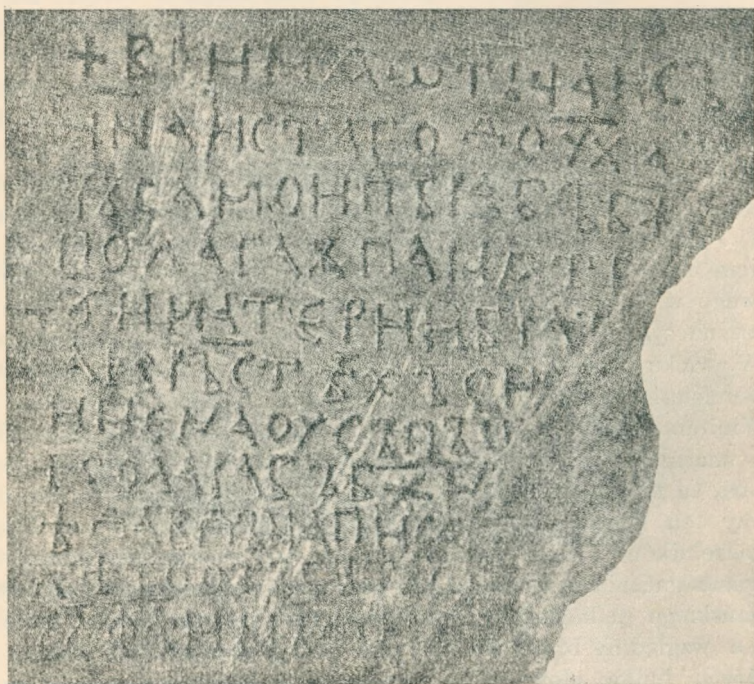 + ВЪ ИМѦ ѠТЬЧА И СЪ
ИНА И СТАГО ДОУХА А
ЗЪ САМОИЛЪ РАБЪ БЖ
ПОЛАГАѪ ПАМѦТ
И МАТЕРИ И БРА
КРЪСТѢХЪ СИ
ИМЕНА ОУСЪПЪШ
КОЛА РАБЪ БЖИ
Ѣ ДАВДЪ НАПИСА
ЛѢТО ОТЪ СЪТВО
ИНЪ